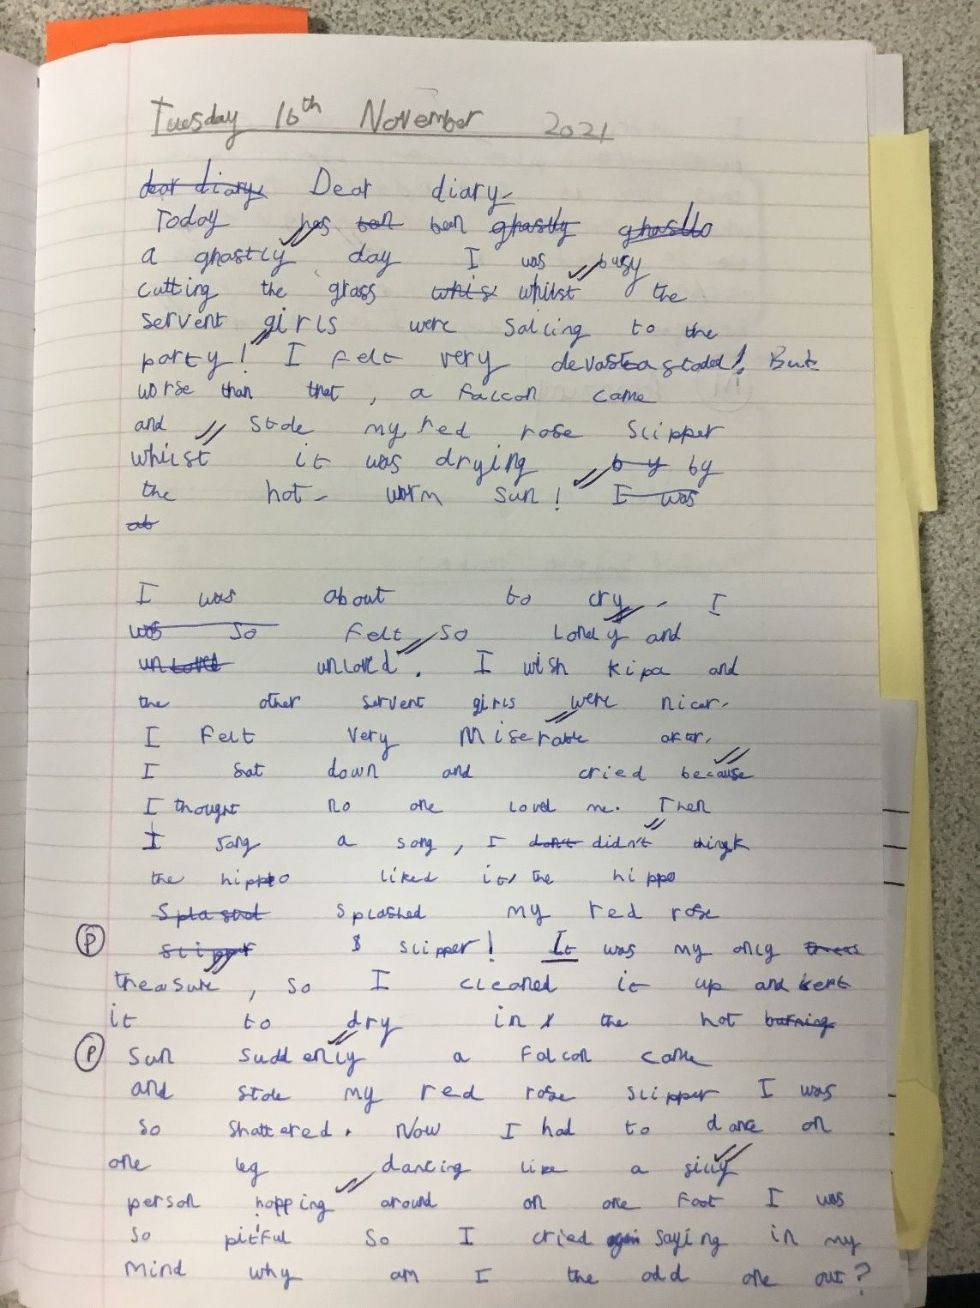 Tuesday 16th November 2021
dear diary Dear diary
Today has ban ban ghastly
a ghastly day I was busy
cutting the grass whist whilst the
servent girls were saling to the
party! I felt very But
worse than that, a falcon came
and stole my red rose slipper
whilst it was drying by by
the hot worm sun! I was
ab
I was about to cry. I
was so felt so lonely and
unloved unloved. I wish kipa and
the other servent girls were nicer.
I felt very miserable
I sat down and cried because
I thought no one loved me. Then
I sang a song, I don't didn't thingk
the hippo liked it, the hippo
splashed my red rose
P slipper slipper! It was my only
treasure, so I cleaned it up and kept
it to dry in the hot burning
P sun suddenly a falcon came
and stole my red rose slipper I was
so shattered. Now I had to dance on
one leg dancing like a silly
person hopping around on one foot I was
so pitful so I cried again saying in my
mind why am I the odd one out?